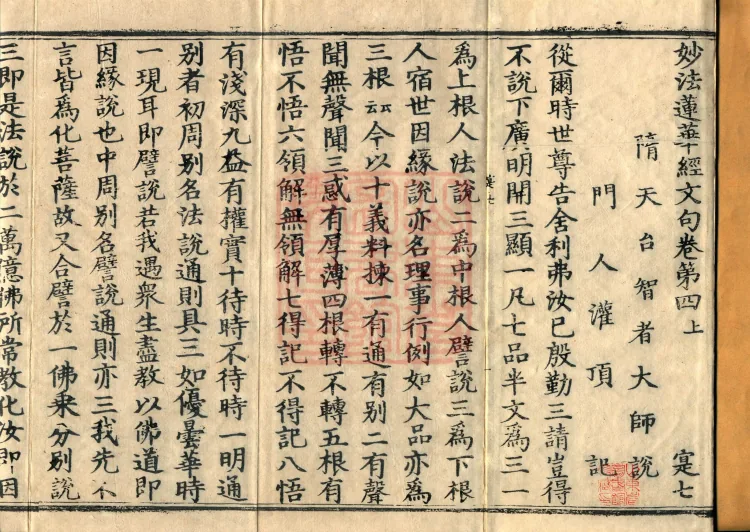 妙法蓮華經文句卷第四上 寔七
隋天台智者大師說
門人灌頂記
從爾時世尊告舍利弗汝已殷勤三請豈得
不說下廣明開三顯一凡七品半文為三一
為上根人法說二為中根人譬說三為下根
人宿世因緣說亦名理事行例如大品亦為
三根云云今以十義料揀一有通有別二有聲
聞無聲聞三惑有厚薄四根轉不轉五根有
悟不悟六領解無領解七得記不得記八悟
有淺深九益有權實十待時不待時一明通
別者初周別名法說通則具三如優曇華時
一現耳即譬說若我遇衆生盡教以佛道即
因緣說也中周別名譬說通則亦三我先不
言皆為化菩薩故又合譬於一佛乘分別說
三即是法說於二萬億佛所常教化汝即因